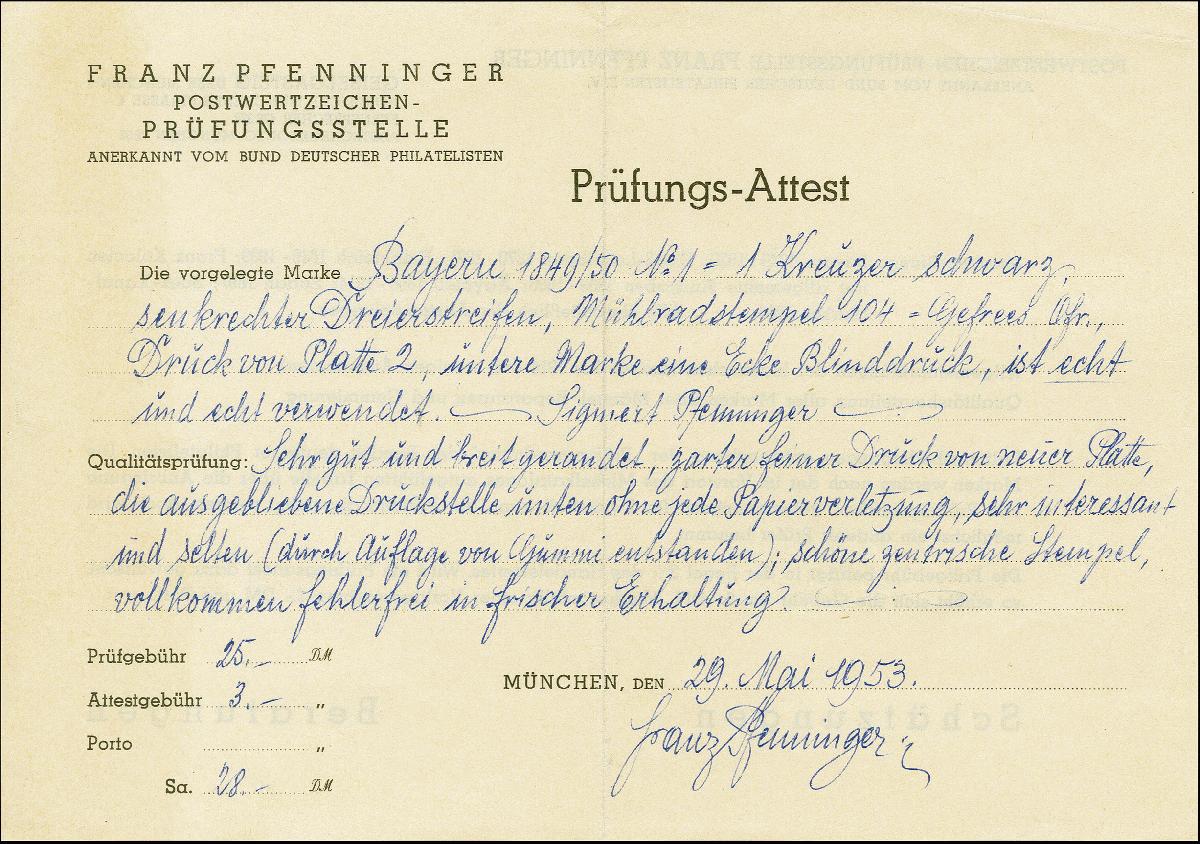 FRANZ PFENNINGER
POSTWERTZEICHEN-
PRÜFUNGSSTELLE
ANERKANNT VOM BUND DEUTSCHER PHILATELISTEN
Prüfungs-Attest
Die vorgelegte Marke Bayern 1849/50 No 1 = 1 Kreuzer schwarz,
senkrechter Dreierstreifen, Mühlradstempel 104 = Gefrees Ofr.,
Druck von Platte 2, untere Marke eine Ecke Blinddruck, ist echt
und echt verwendet. — Signiert Pfenninger —
Qualitätsprüfung: Sehr gut und breitgerandet, zarter feiner Druck von neuer Platte,
die ausgebliebene Druckstelle unten ohne jede Papierverletzung, sehr interessant
und selten (durch Auflage von Gummi entstanden); schöne zentrische Stempel,
vollkommen fehlerfrei in frischer Erhaltung. —
Prüfgebühr 25.- DM
Attestgebühr 3.- „
Porto „
Sa. 28.- DM
MÜNCHEN, DEN 29. Mai 1953.
Franz Pfenninger